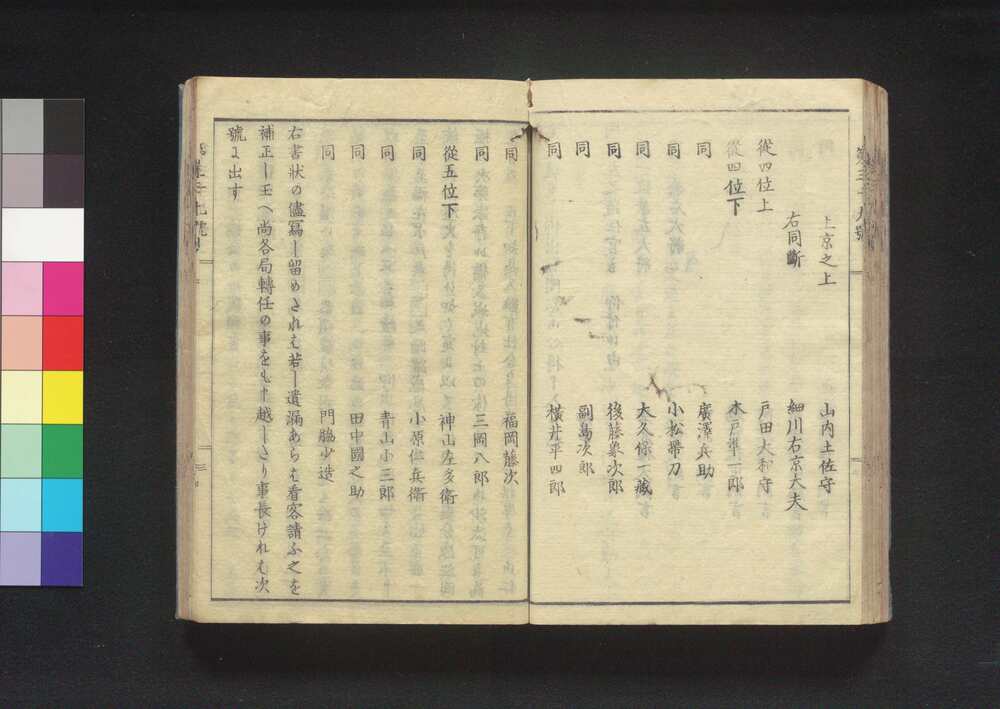 上京之上 山内土佐守
右同斷 細川右京大夫
從四位上 戸田大和守
從四位下 木戸準一郎
同 廣澤兵助
同 小松帶刀
同 大久保一藏
同 後藤象次郎
同 副島次郎
同 横井平四郎
同 福岡藤次
同 三岡八郎
從五位下 神山左多衛
同 小原仁兵衛
同 青山小三郎
同 田中國之助
同 門脇少造
右書状の儘寫し留めされも若し遺漏あらも看客請ふ之を
補正し玉へ尚各局轉任の事をも申越しさり事長けれも次
號に出す